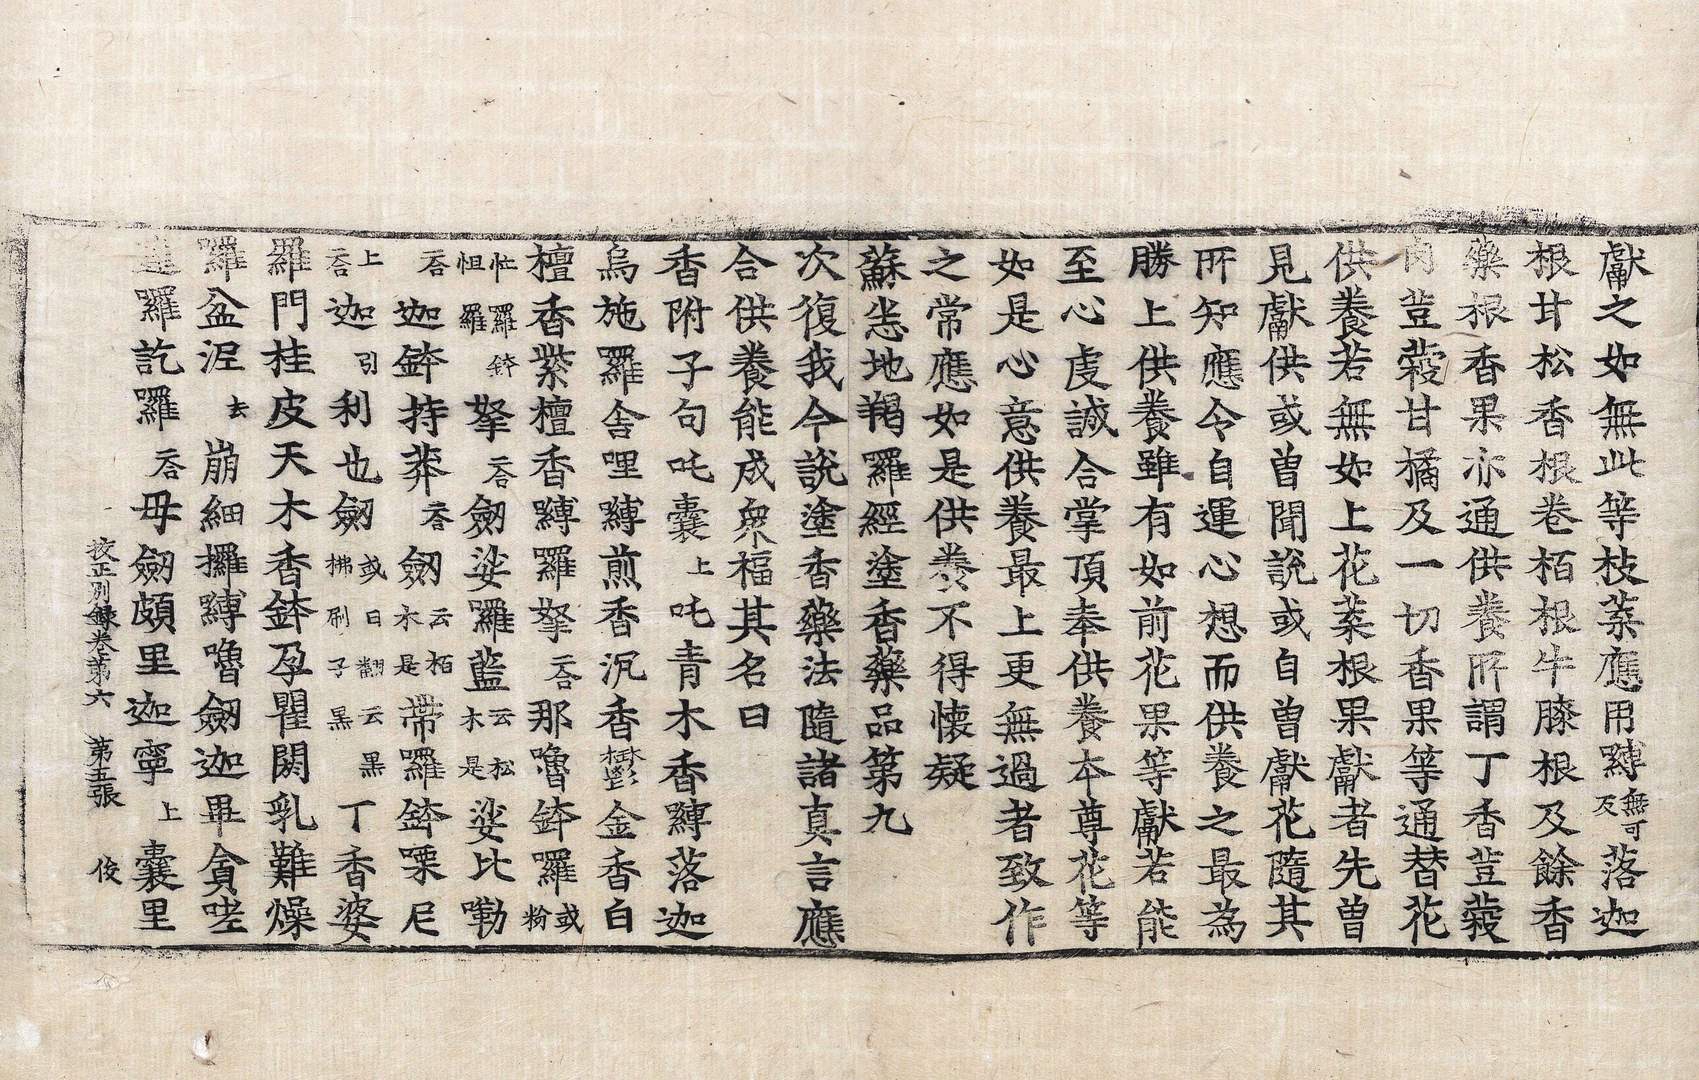 獻之如無此等枝葉應用嚩無可反落迦
根甘松香根卷栢根牛膝根及餘香
藥根香果亦通供養所謂丁香荳蔲
肉荳蔲甘橘及一切香果等通替花
供養若無如上花葉根果獻者先曾
見獻供或曾聞說或自曾獻花隨其
所知應令自運心想而供養之最為
勝上供養雖有如前花果等獻若能
至心虔誠合掌頂奉供養本尊花等
如是心意供養最上更無過者致作
之常應如是供養不得懷疑
蘇悉地羯羅經塗香藥品第九
次復我今說塗香藥法隨諸真言應
合供養能成衆福其名曰
香附子句吒囊上吒青木香嚩落迦
烏施羅舍哩嚩煎香沉香欝金香白
檀香紫檀香嚩羅拏二合那嚕鉢羅或粉
忙囉鉢怛羅拏二合劒娑羅藍云松木是娑比嘞
二合迦鉢持莽二合劒云栢木是帶囉鉢㗚尼
上二合迦引利也劒或曰翻云黑拂刷子黑丁香婆
羅門桂皮天木香鉢孕瞿閼乳難燥
羅盆泥去崩細攞嚩嚕劒迦畢貪哇
囉訖囉二合毋劒頗里迦寧上囊里
挍正別錄卷第六 第五張 俊